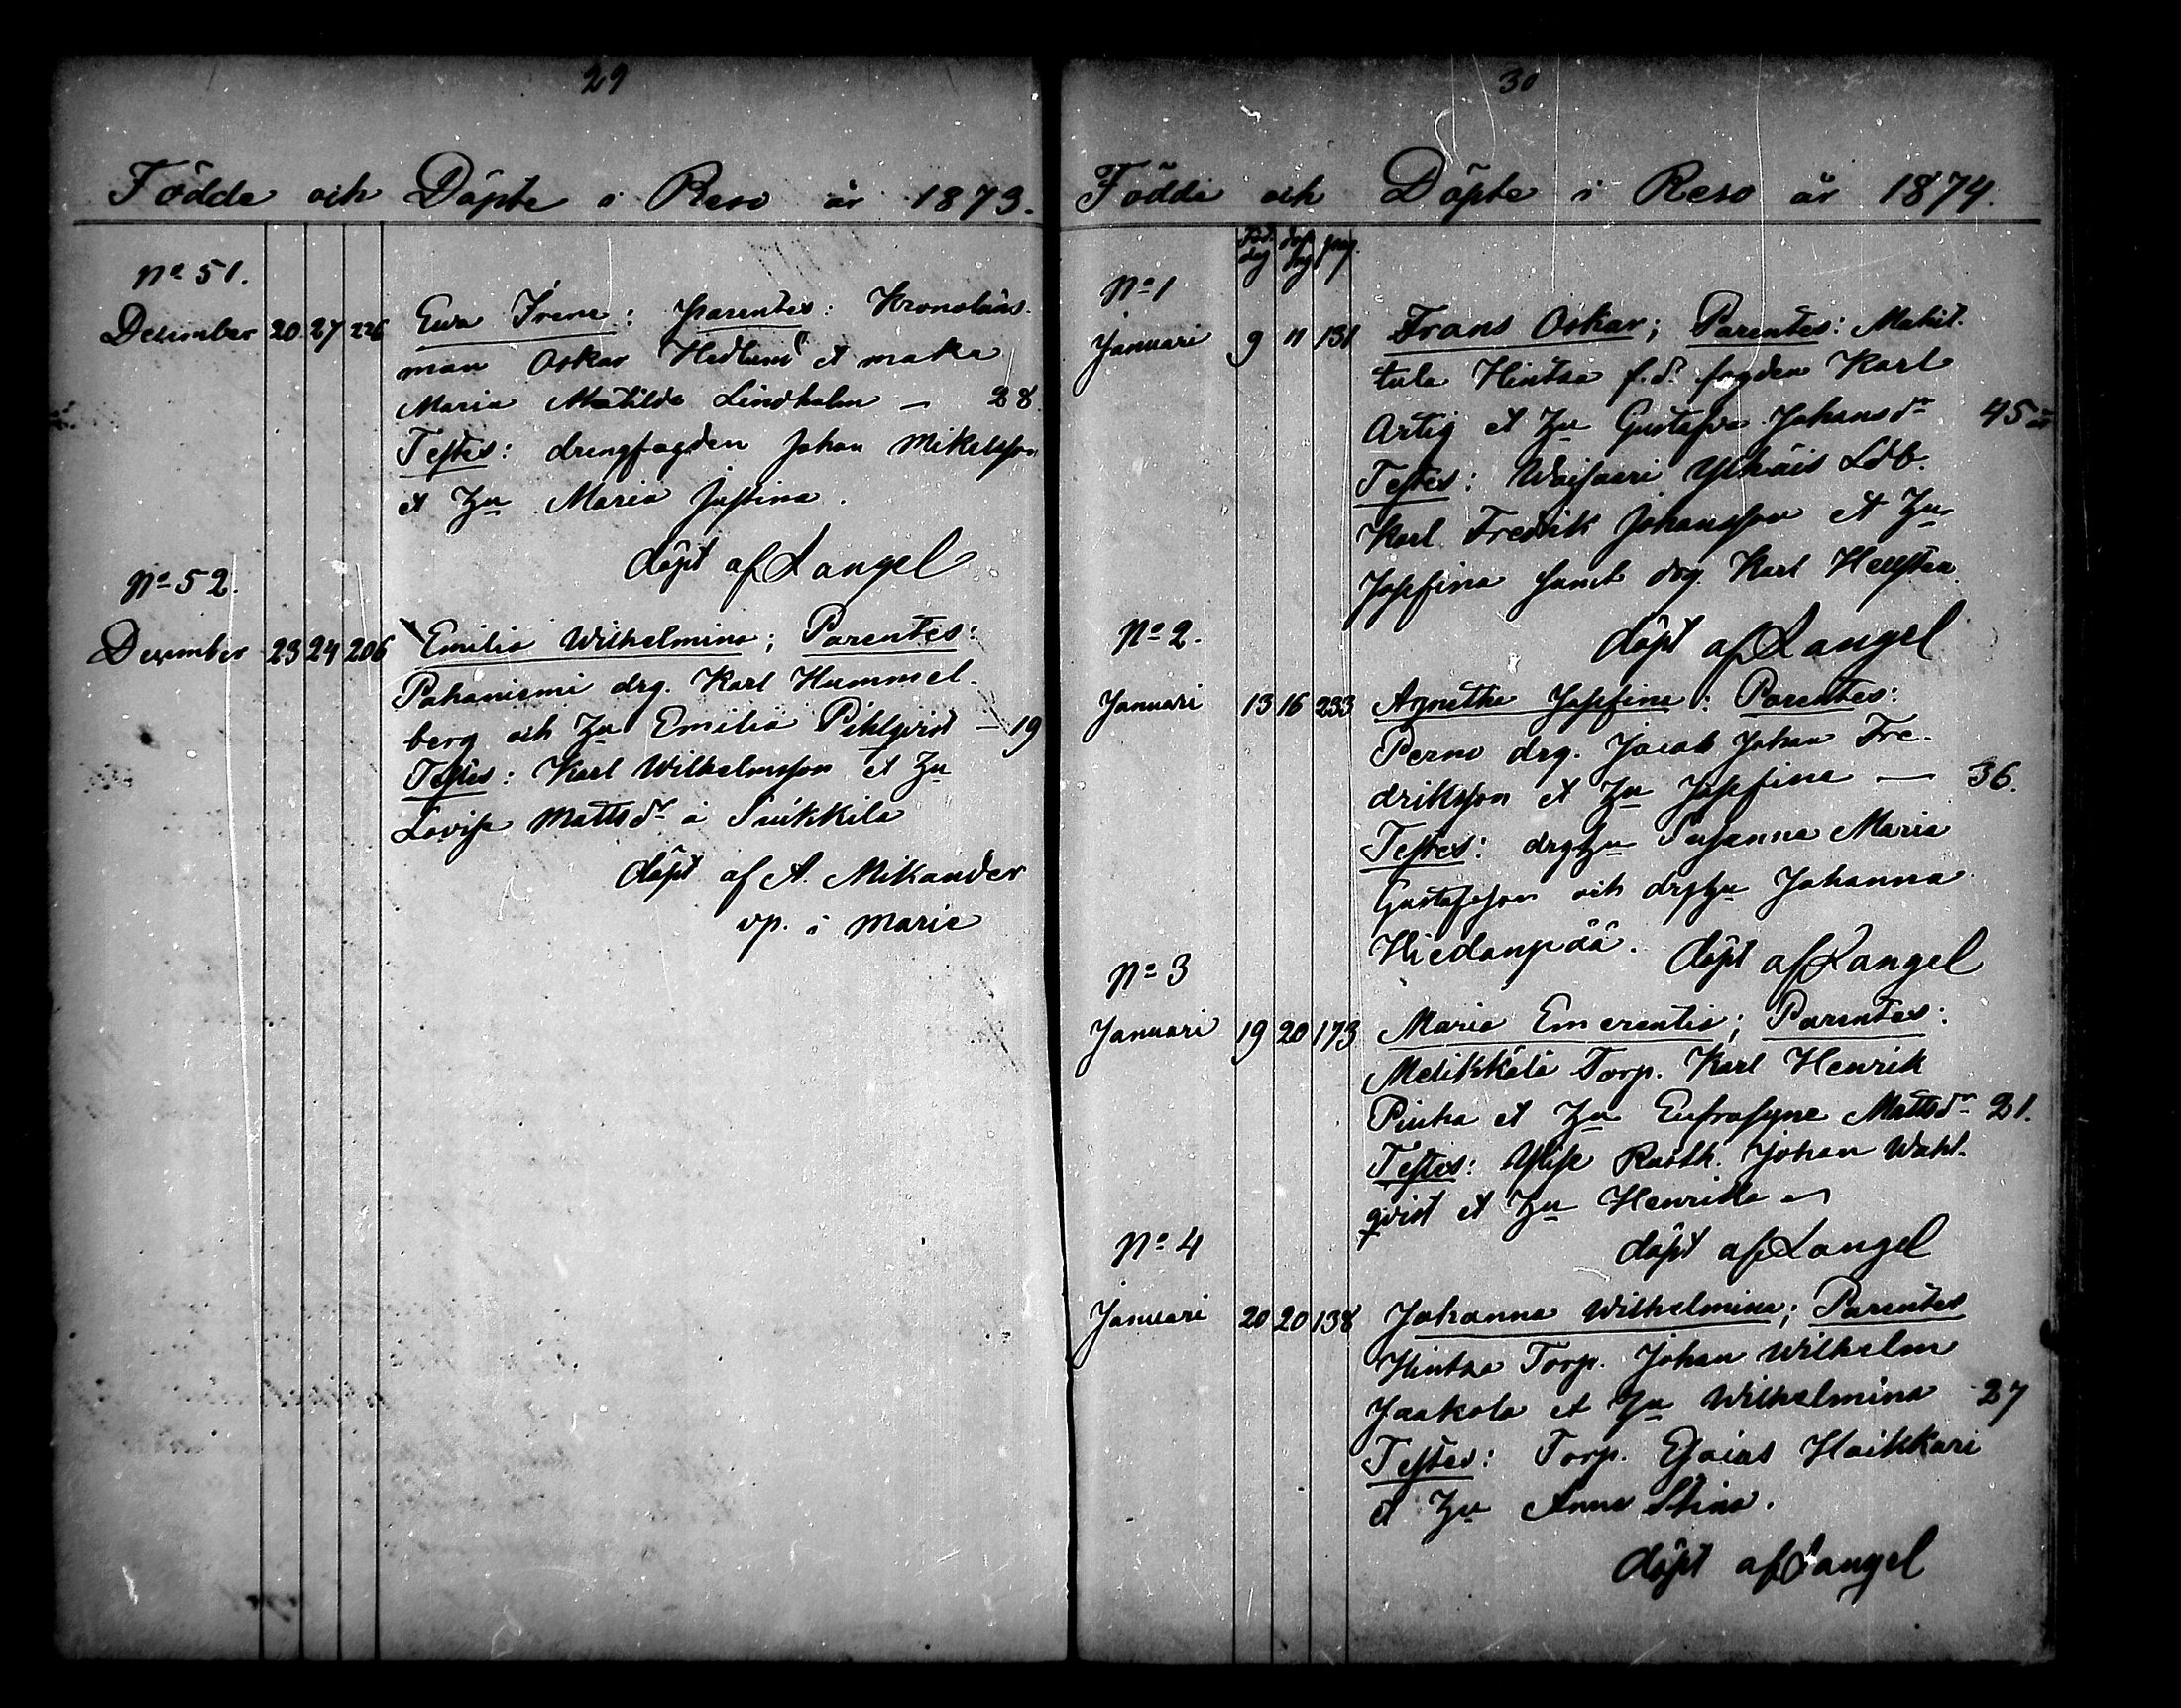 29
Födde och Döpte i Reso år 1873.
No 51.
December 20 27 226 Ewa Irene: Parentes: Kronoläns-
man Oskar Hedlund et maka
Maria Matilda Lindholm — 28.
Testes: drengfogden Johan Mikelsson
et Hu Maria Justina.
döpt af Langel
No 52.
December 23 24 206 Emilia Wilhelmina; Parentes:
Pahaniemi drg. Karl Hummel-
berg och Hu Emilia Pihlqvist — 19
Testes: Karl Wilhelmsson et Hu
Lovisa Mattsdr å Suikkila
döpt af A. Mikander
vp. i Marie
30
Födde och Döpte i Reso år 1874.
Föd. dag döp dag pag.
No 1
Januari 9 11 131 Frans Oskar; Parentes: Mahit-
tula Hintsa f.d. fogden Karl
Artig et Hu Gustafva Johansdr 45 år
Testes: Waisaari Ylhäis Ldb.
Karl Fredrik Johansson et Hu
Josefina samt drg. Karl Hellsten.
döpt af Langel
No 2.
Januari 13 16 233 Agnetha Josefina: Parentes:
Perno drg. Jacob Johan Fre-
driksson et Hu Josefina — 36.
Testes: drghu Susanna Maria
Gustafsson och drghu Johanna
Hiedanpää. döpt af Langel
No 3
Januari 19 20 173 Maria Emerentia; Parentes:
Metikkälä Torp. Karl Henrik
Pinha et Hu Eufrosyne Mattsdr 21.
Testes: Rusth. Johan Wahl-
qvist et Hu Henrika
döpt af Langel
No 4
Januari 20 20 138 Johanna Wilhelmina; Parentes
Hintsa Torp. Johan Wilhelm
Jaakola et Hu Wilhelmina 27
Testes: Torp. Esaias Haikkari
et Hu Anna Stina.
döpt af Langel